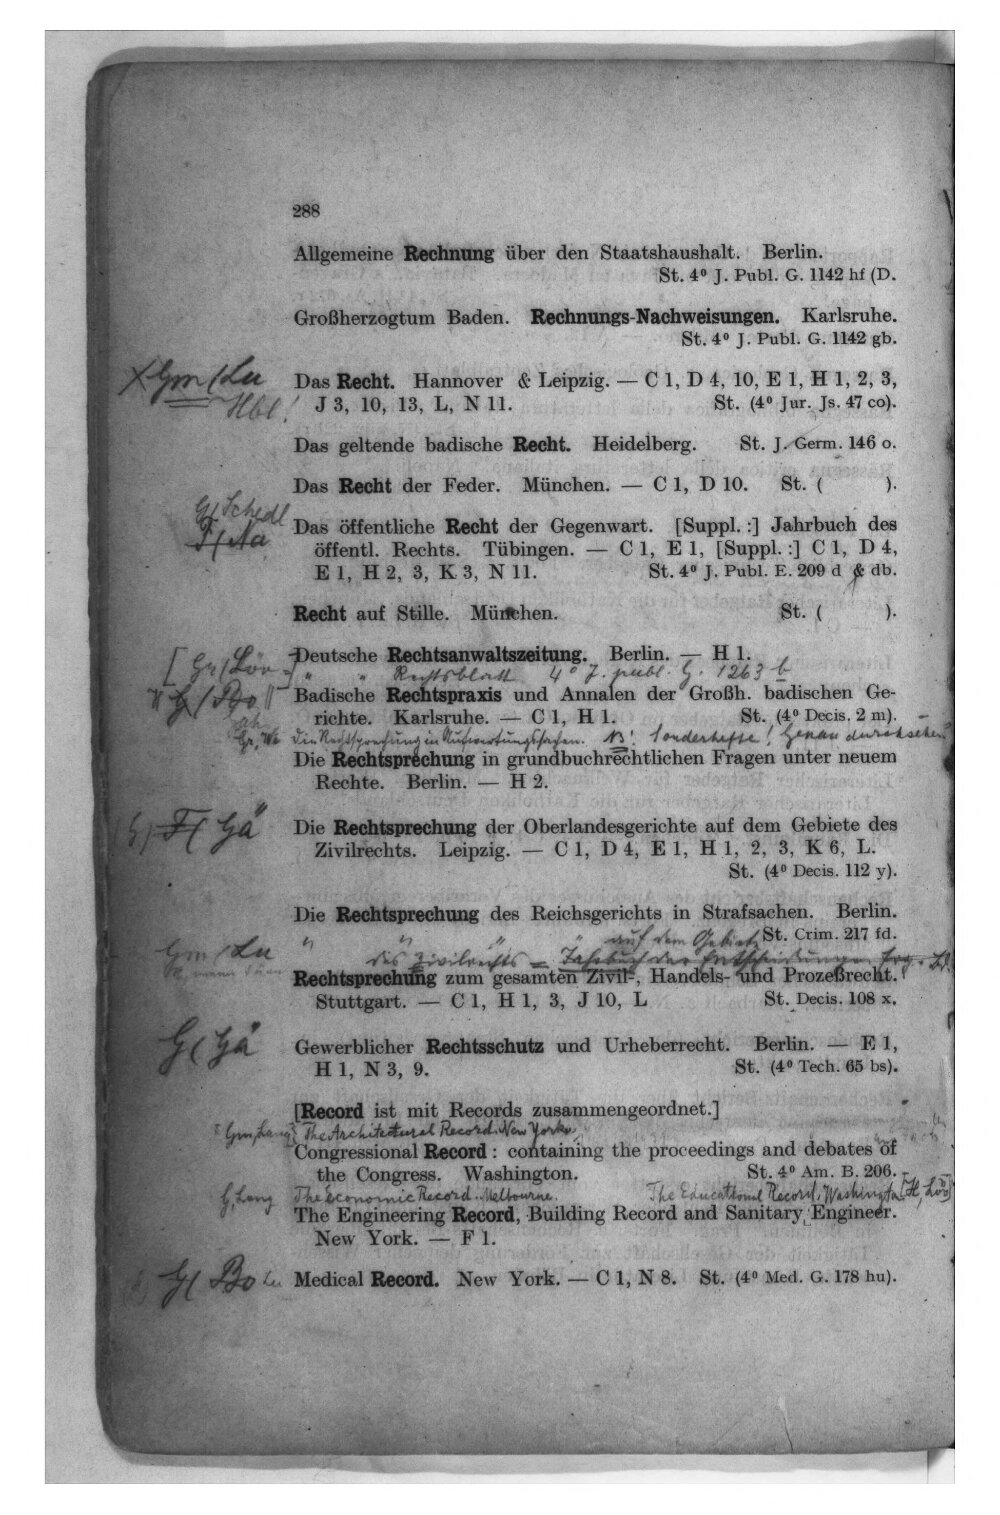 288
Allgemeine Rechnung über den Staatshaushalt. Berlin.
St. 4⁰ J. Publ. G. 1142 hf (D.
Großherzogtum Baden. Rechnungs-Nachweisungen. Karlsruhe.
St. 4⁰ J. Publ. G. 1142 gb.
Gm/Lu
Hbl!
Das Recht. Hannover & Leipzig. — C 1, D 4, 10, E 1, H 1, 2, 3,
J 3, 10, 13, L, N 11. St. (4⁰ Jur. Js. 47 co).
Das geltende badische Recht. Heidelberg. St. J. Germ. 146 o.
Das Recht der Feder. München. — C 1, D 10. St. ( ).
G/Schedl
F/Aa
Das öffentliche Recht der Gegenwart. [Suppl. :] Jahrbuch des
öffentl. Rechts. Tübingen. — C 1, E 1, [Suppl. :] C 1, D 4,
E 1, H 2, 3, K 3, N 11. St. 4⁰ J. Publ. E. 209 d & db.
Recht auf Stille. München. St. ( ).
Deutsche Rechtsanwaltszeitung. Berlin. — H 1.
[Gr/Löv-]
" " Rechtsblatt 4⁰ J. publ. G. 1263 b
G/Bo
Badische Rechtspraxis und Annalen der Großh. badischen Ge-
richte. Karlsruhe. — C 1, H 1. St. (4⁰ Decis. 2 m).
Die Rechtsprechung in Aufwertungssachen. NB! Sonderhefte! Genau durchsehen
Die Rechtsprechung in grundbuchrechtlichen Fragen unter neuem
Rechte. Berlin. — H 2.
F/Gä
Die Rechtsprechung der Oberlandesgerichte auf dem Gebiete des
Zivilrechts. Leipzig. — C 1, D 4, E 1, H 1, 2, 3, K 6, L.
St. (4⁰ Decis. 112 y).
Die Rechtsprechung des Reichsgerichts in Strafsachen. Berlin.
St. Crim. 217 fd.
Gm/Lu
" " " " auf dem Gebiete
des Zivilrechts = Jahrbuch der Entscheidungen
Rechtsprechung zum gesamten Zivil-, Handels- und Prozeßrecht.
Stuttgart. — C 1, H 1, 3, J 10, L St. Decis. 108 x.
G/Gä
Gewerblicher Rechtsschutz und Urheberrecht. Berlin. — E 1,
H 1, N 3, 9. St. (4⁰ Tech. 65 bs).
[Record ist mit Records zusammengeordnet.]
Gm, Lang The Architectural Record. New York.
Congressional Record : containing the proceedings and debates of
the Congress. Washington. St. 4⁰ Am. B. 206.
G, Lang The economic Record. Melbourne. The Educational Record. Washington [H, Löv]
The Engineering Record, Building Record and Sanitary Engineer.
New York. — F 1.
G/Bo
Medical Record. New York. — C 1, N 8. St. (4⁰ Med. G. 178 hu).